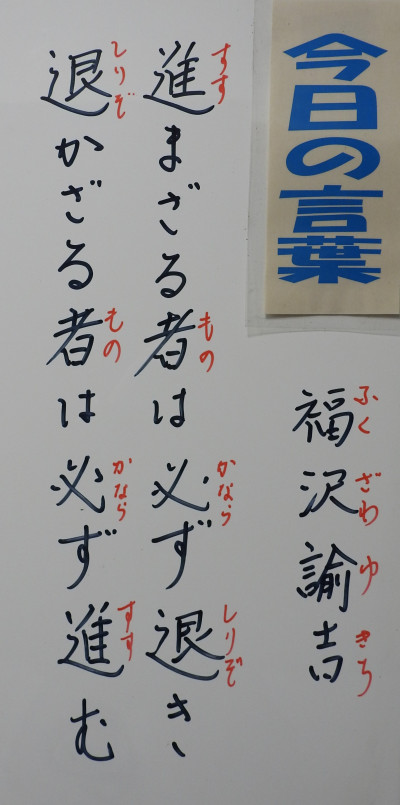 今日の言葉
福沢諭吉
ふくざわゆきち
進まざる者は必ず退き、
すす もの かなら しりぞ
退かざる者は必ず進む
しりぞ もの かなら すす